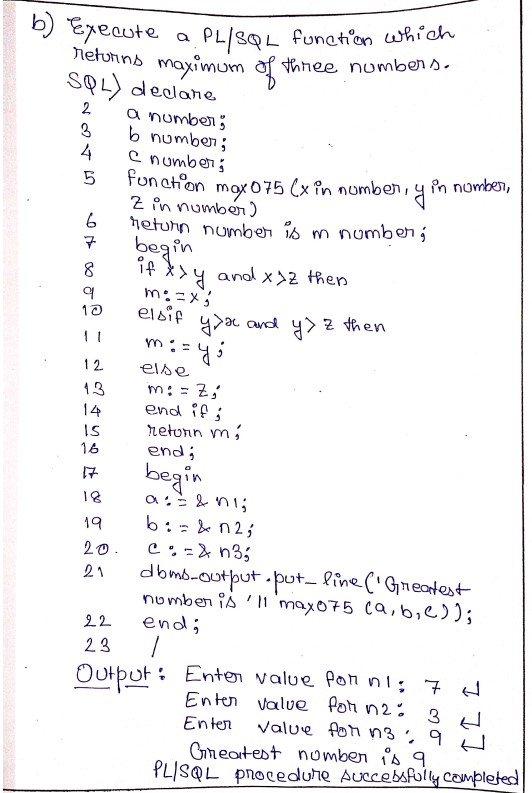 b) Execute a PL/SQL function which
returns maximum of three numbers.
SQL> declare
2 a number;
3 b number;
4 c number;
5 function max075 (x in number, y in number,
z in number)
6 return number is m number;
7 begin
8 if x>y and x>z then
9 m:=x;
10 elsif y>x and y>z then
11 m:=y;
12 else
13 m:=z;
14 end if;
15 return m;
16 end;
17 begin
18 a:=& n1;
19 b:=& n2;
20. c:=& n3;
21 dbms_output.put_line('Greatest
number is '|| max075 (a,b,c));
22 end;
23 /
Output: Enter value for n1: 7 ↵
Enter value for n2: 3 ↵
Enter value for n3: 9 ↵
Greatest number is 9
PL/SQL procedure successfully completed